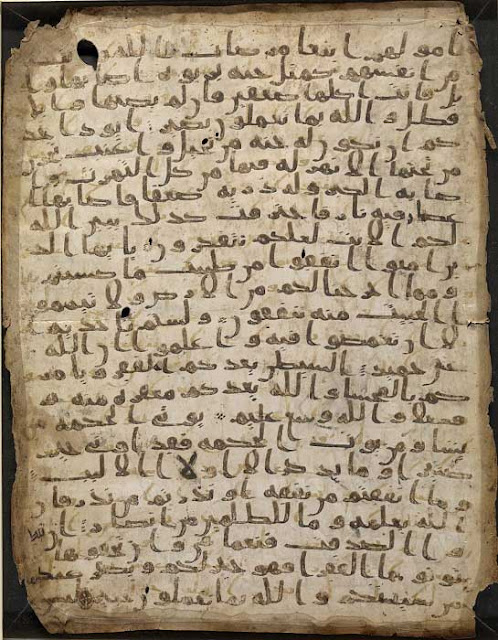 امولهم ابتغا مرضات الله و
من انفسهم كمثل جنة بربوة اصابها وا
بل فاتت اكلها ضعفين فان لم يصبها وابل
فطل والله بما تعملون بصير ايود احد
كم ان تكون له جنة من نخيل واعنب تجري
من تحتها الانهر له فيها من كل الثمرت و
اصابه الكبر وله ذرية ضعفا فاصابها
اعصار فيه نار فاحترقت كذلك يبين الله
لكم الايت لعلكم تتفكرون يايها الذ
ين امنوا انفقوا من طيبت ما كسبتم
ومما اخرجنا لكم من الارض ولا تيمموا
الخبيث منه تنفقون ولستم باخذيه ا
لا ان تغمضوا فيه واعلموا ان الله
غني حميد الشيطن يعدكم الفقر ويامر
كم بالفحشا والله يعدكم مغفرة منه و
فضلا والله وسع عليم يوتي الحكمة من
يشا ومن يوت الحكمة فقد اوتي خيرا
كثيرا وما يذكر الا اولوا الالبب
وما انفقتم من نفقة او نذرتم من نذر فان
الله يعلمه وما للظلمين من انصار ان
تبدوا الصدقت فنعما هي وان تخفوها
وتوتوها الفقرا فهو خير لكم ونكفر عنكم
من سيتكم والله بما تعملون خبير ليس